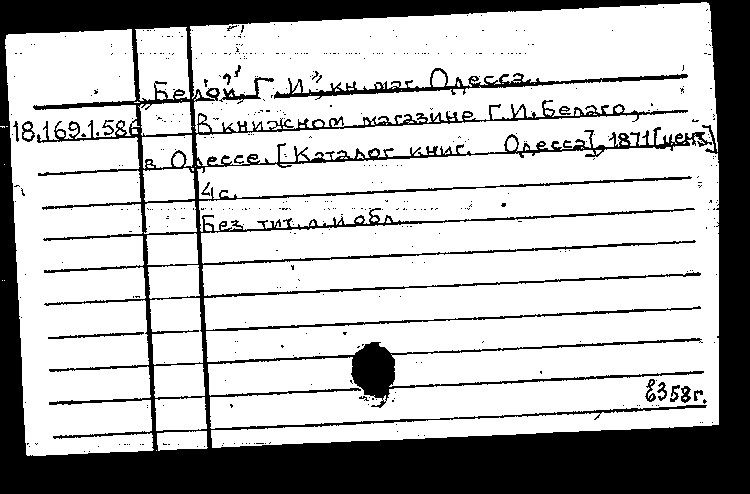 „Белой, Г. И.", кн. маг. Одесса.
18.169.1.586 В книжном магазине Г.И. Белаго,
в Одессе. [Каталог книг. Одесса], 1871 [ценз.]
4 с.
Без тит. л. и обл.
358г.